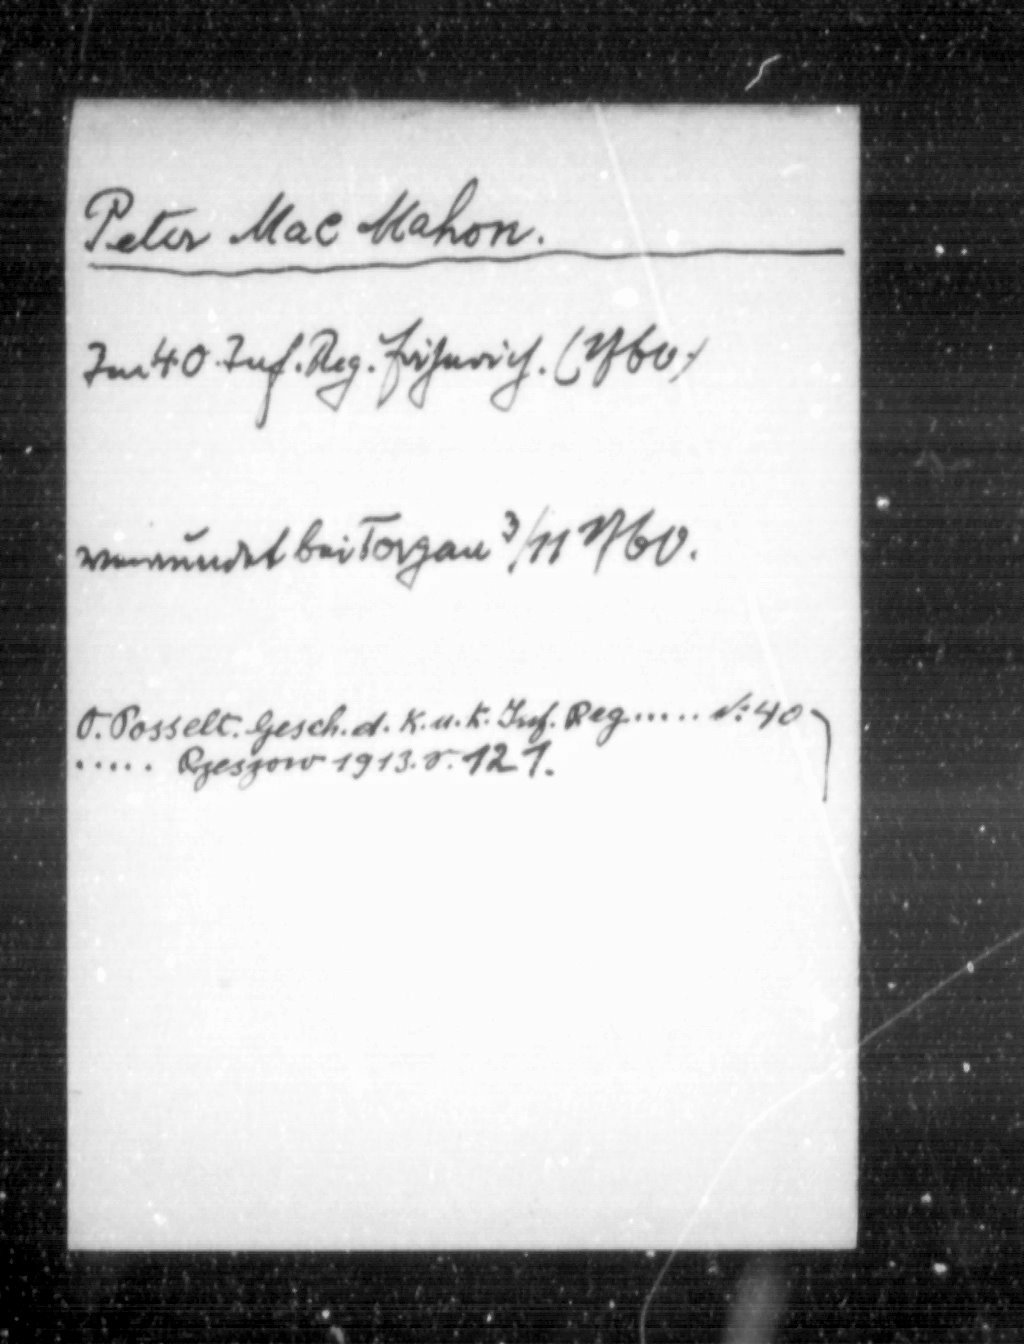 Peter Mac Mahon.
Im 40 Inf. Reg. Fähnrich. (1760.)
verwundet bei Torgau 3/11 1760.
O. Posselt. Gesch. d. K. u. K. Inf. Reg..... Nr: 40
..... Rzeszow 1913. S. 121.